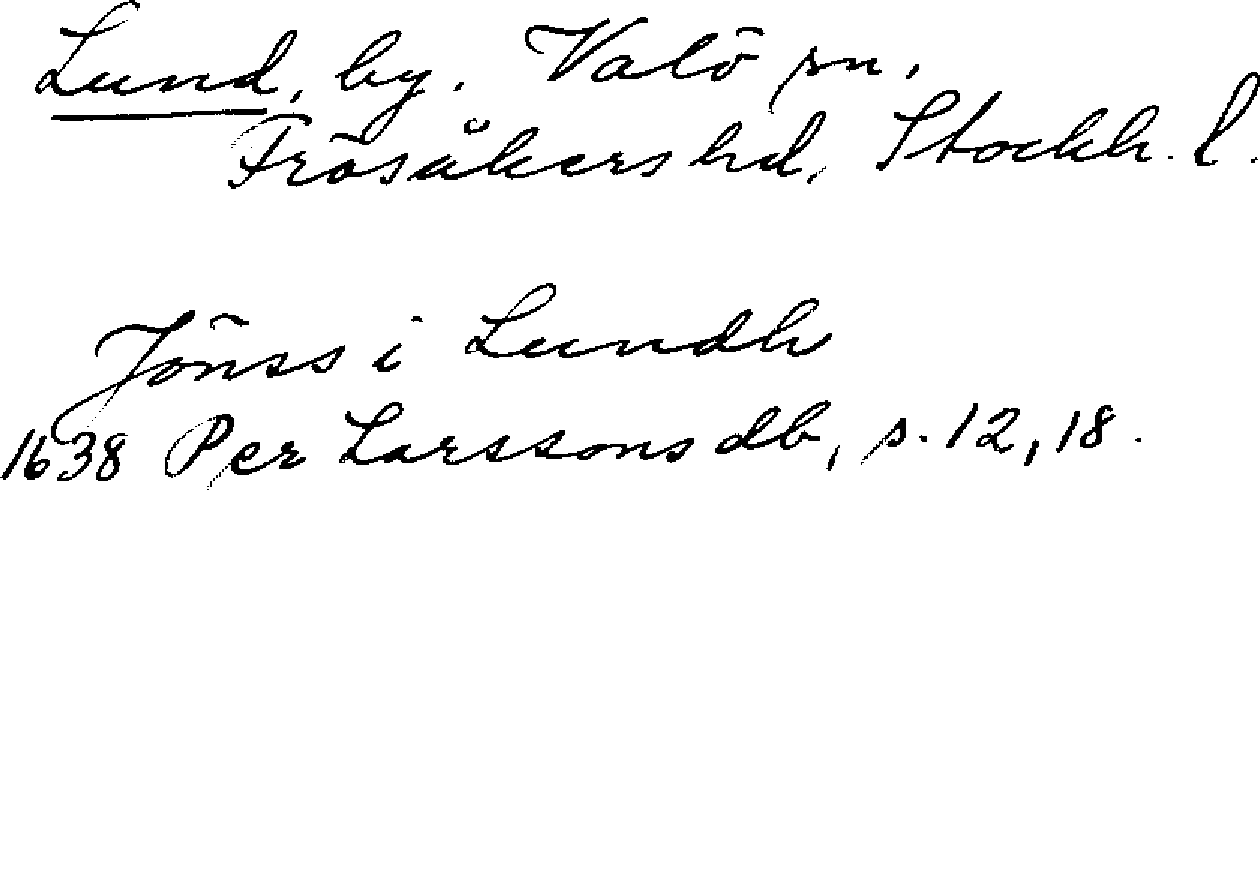 Lund, by. Valö sn,
Frösåkers hd, Stockh. l.
Jönss i Lundh
1638 Per Larssons db, s. 12, 18.